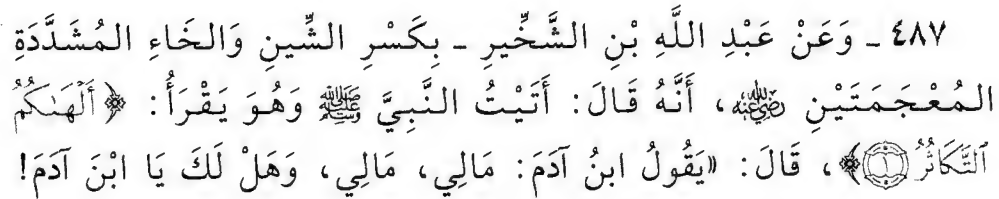 ٤٨٧ ـ وَعَنْ عَبْدِ اللَّهِ بْنِ الشِّخِّيرِ ـ بِكَسْرِ الشِّينِ وَالخَاءِ المُشَدَّدَةِ
المُعْجَمَتَيْنِ رضي الله عنه، أَنَّهُ قَالَ: أَتَيْتُ النَّبِيَّ ﷺ وَهُوَ يَقْرَأُ: ﴿أَلْهَىٰكُمُ
ٱلتَّكَاثُرُ ۝١﴾، قَالَ: «يَقُولُ ابنُ آدَمَ: مَالِي، مَالِي، وَهَلْ لَكَ يَا ابْنَ آدَمَ!